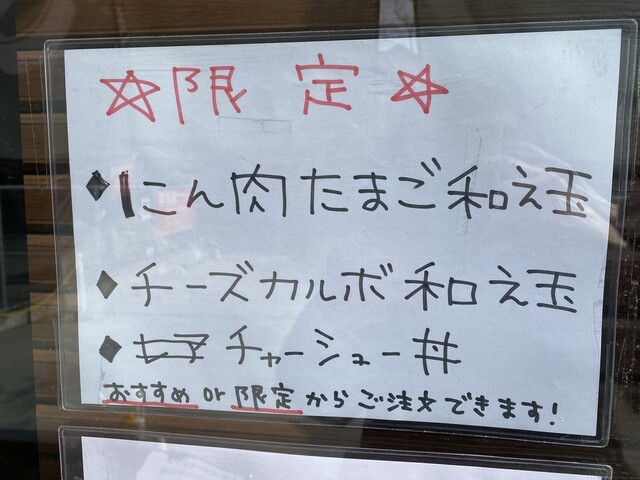 ☆限定☆
◆にこん肉たまご和え玉
◆チーズカルボ和え玉
◆チャーシュー丼
おすすめ or 限定からご注文できます!